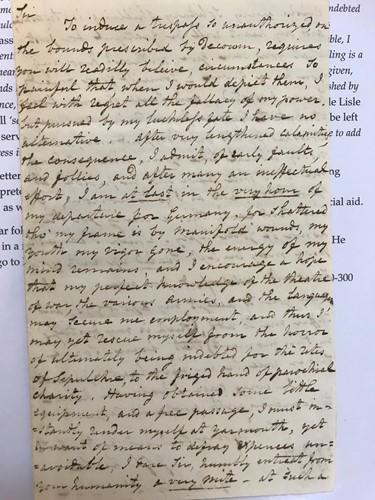 Sir
To induce a trespass so unauthorized on
the bounds prescribed by Decorum, requires
you will readily beleive, circumstances so
painful that when I would depict them, I
feel with regret all the fallacy of my power,
but pursued by my luckless fate I have no
alternative. After very lengthened calamities
the consequence, I admit, of early faults,
and follies, and after many an ineffectual
effort, I am at last in the very hour of
my departure for Germany, for shattered
tho' my frame is by manifold wounds, my
youth my vigor gone, the energy of my
mind remains and I encourage a hope
that my perfect knowledge of the theatre
of war, the various Armies, and the language
may secure me employment, and thus I
may yet rescue myself from the horror
of ultimately being indebted for the rites
of Sepulchre, to the frigid hand of parochial
charity. Having obtained some little
equipment, and a free passage, I must in=
=stantly render myself at Yarmouth, yet
in want of means to defray expences un=
=avoidable, I dare Sir, humbly entreat from
your humanity a very mite - at such a
indebted
able, I
ing is a
given,
shed by
Lisle
be left
to add
ng
ial aid.
He
0-300
nce,
'sel
serv
ress i
etter
prete
as w
ar fol
in a
go to